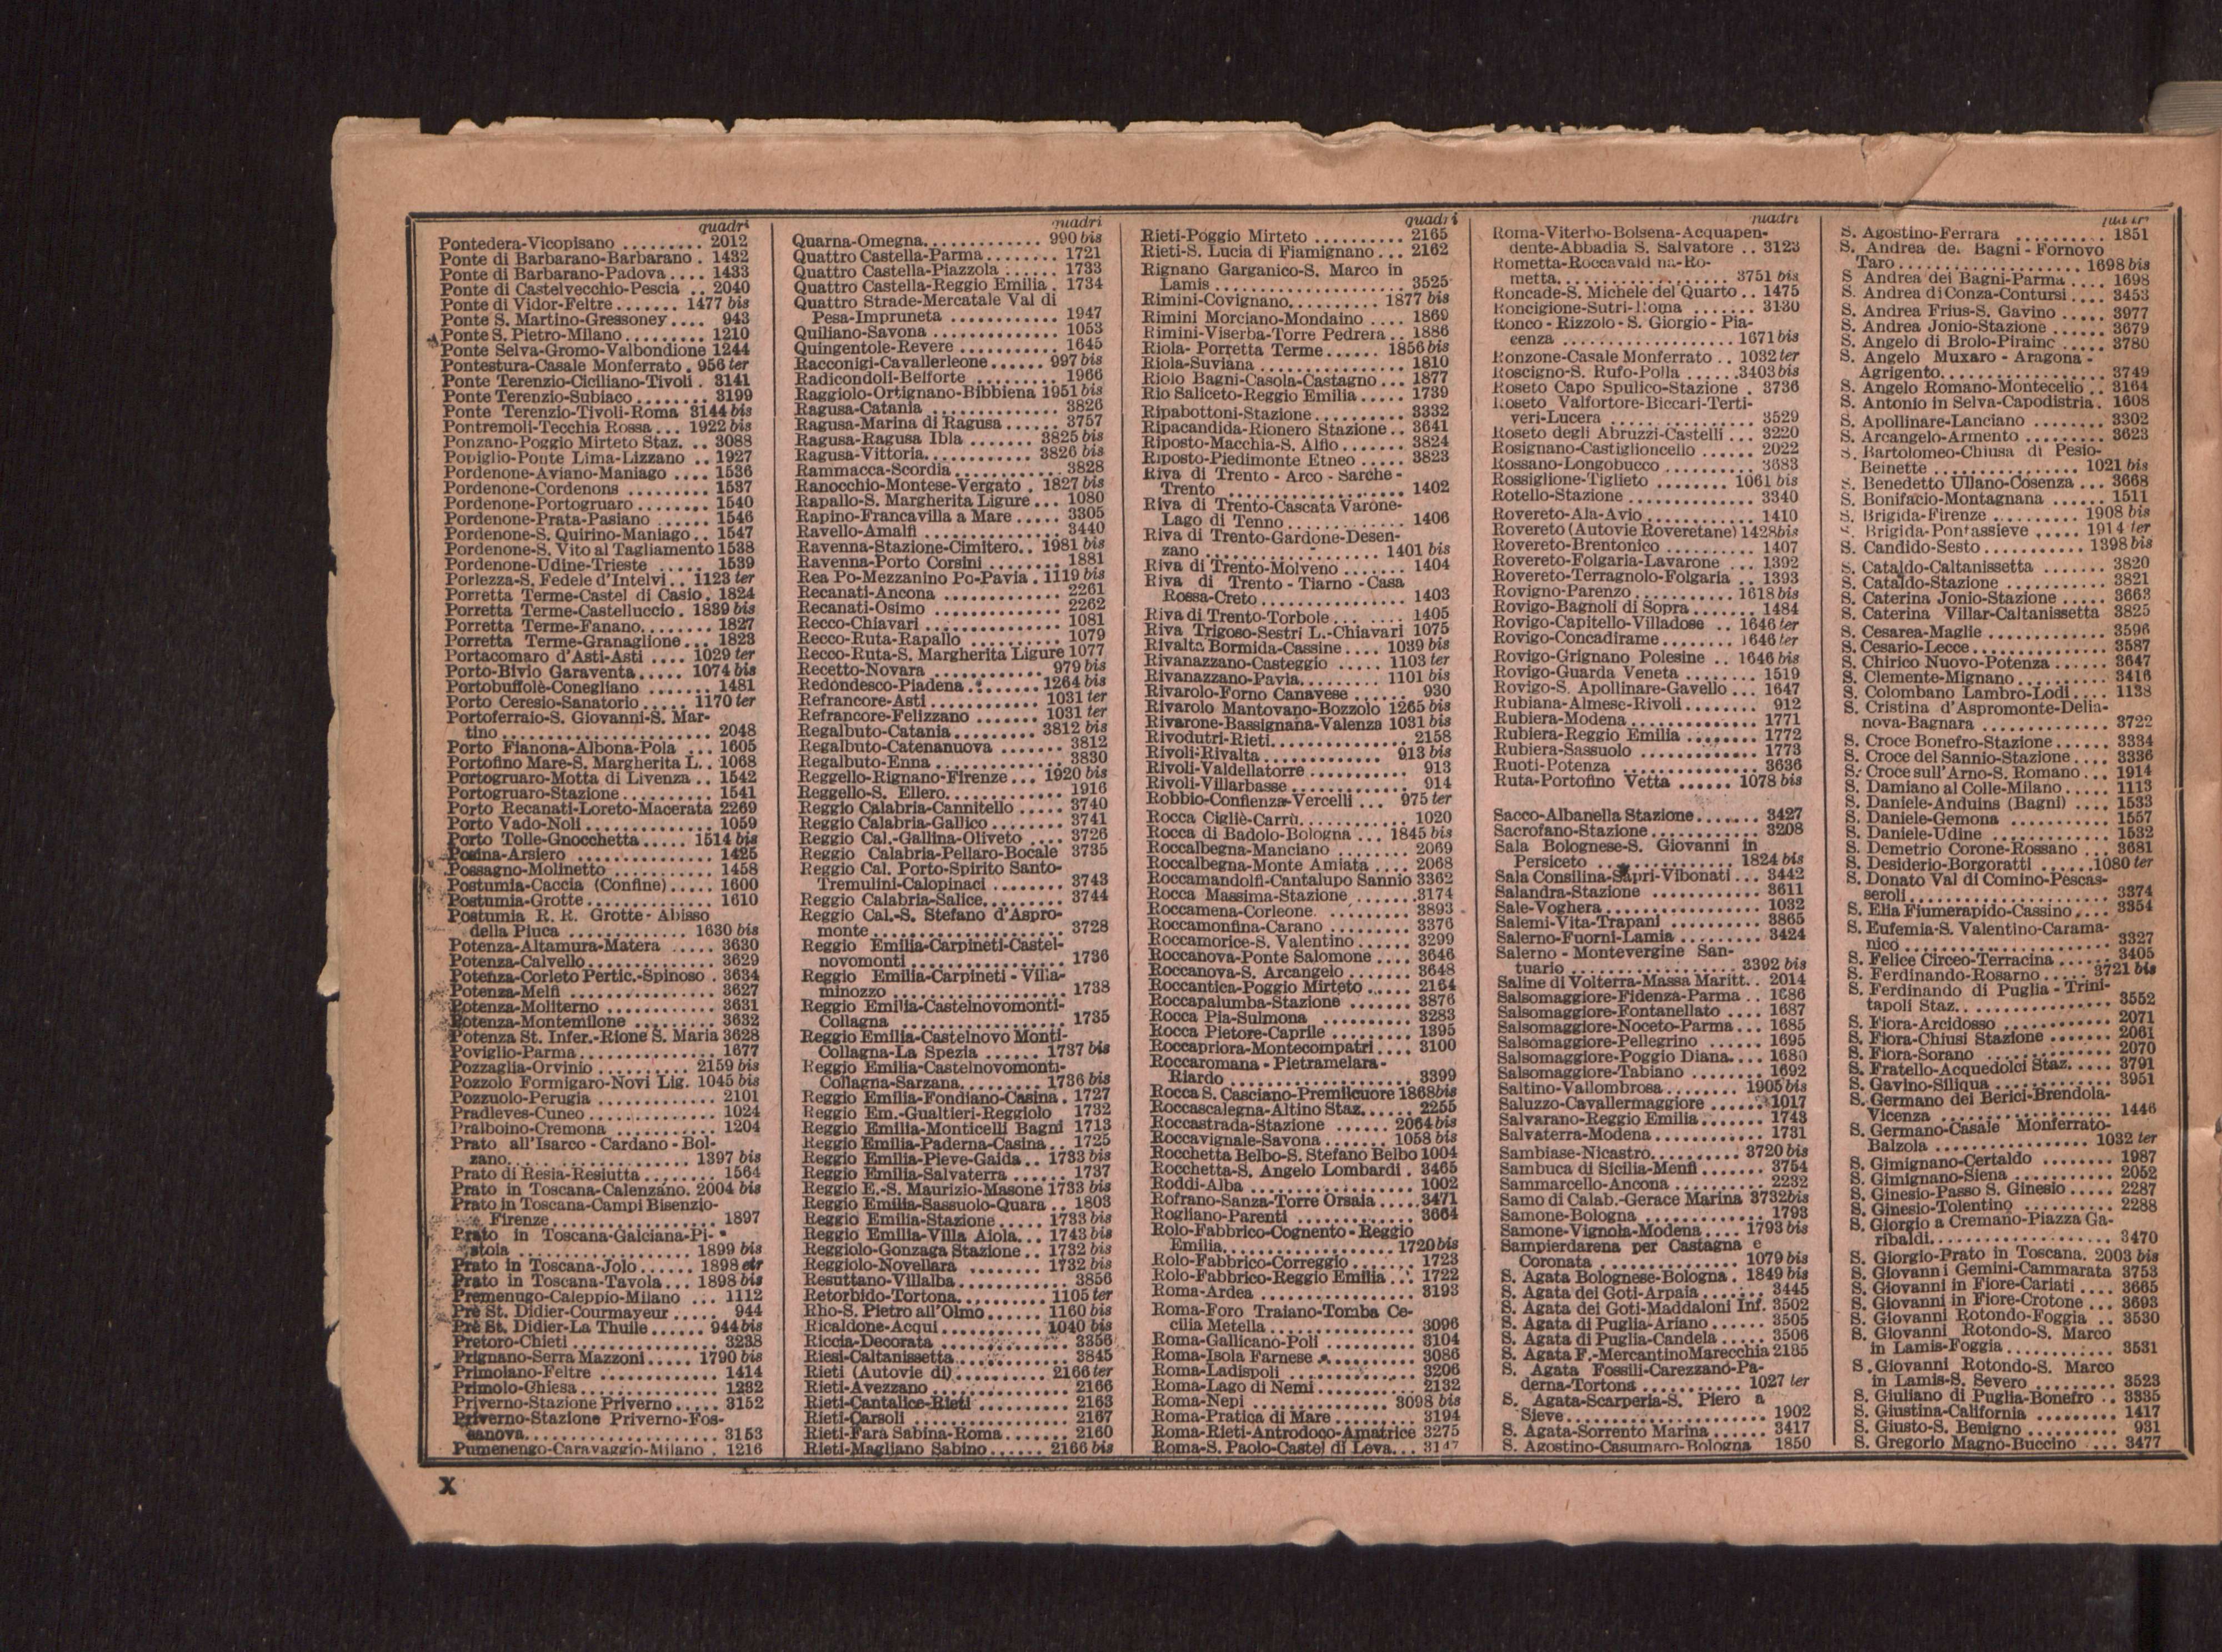 quadri
Pontedera-Vicopisano ......... 2012
Ponte di Barbarano-Barbarano . 1432
Ponte di Barbarano-Padova .... 1433
Ponte di Castelvecchio-Pescia .. 2040
Ponte di Vidor-Feltre ....... 1477 bis
Ponte S. Martino-Gressoney .... 943
Ponte S. Pietro-Milano .......... 1210
Ponte Selva-Gromo-Valbondione 1244
Pontestura-Casale Monferrato . 956 ter
Ponte Terenzio-Ciciliano-Tivoli . 3141
Ponte Terenzio-Subiaco ........ 3199
Ponte Terenzio-Tivoli-Roma 3144 bis
Pontremoli-Tecchia Rossa ... 1922 bis
Ponzano-Poggio Mirteto Staz. .. 3088
Popiglio-Ponte Lima-Lizzano .. 1927
Pordenone-Aviano-Maniago .... 1536
Pordenone-Cordenons ......... 1537
Pordenone-Portogruaro ........ 1540
Pordenone-Prata-Pasiano ...... 1546
Pordenone-S. Quirino-Maniago .. 1547
Pordenone-S. Vito al Tagliamento 1538
Pordenone-Udine-Trieste ..... 1539
Porlezza-S. Fedele d'Intelvi .. 1123 ter
Porretta Terme-Castel di Casio . 1824
Porretta Terme-Castelluccio . 1839 bis
Porretta Terme-Fanano........ 1827
Porretta Terme-Granaglione... 1823
Portacomaro d'Asti-Asti .... 1029 ter
Porto-Bivio Garaventa..... 1074 bis
Portobuffolè-Conegliano ....... 1481
Porto Ceresio-Sanatorio ..... 1170 ter
Portoferraio-S. Giovanni-S. Mar-
tino........................ 2048
Porto Fianona-Albona-Pola ... 1605
Portofino Mare-S. Margherita L.. 1068
Portogruaro-Motta di Livenza .. 1542
Portogruaro-Stazione .......... 1541
Porto Recanati-Loreto-Macerata 2269
Porto Vado-Noli .............. 1059
Porto Tolle-Gnocchetta..... 1514 bis
Posina-Arsiero ............... 1425
Possagno-Molinetto ........... 1458
Postumia-Caccia (Confine)..... 1600
Postumia-Grotte.............. 1610
Postumia R. R. Grotte-Abisso
della Piuca ............. 1630 bis
Potenza-Altamura-Matera ..... 3630
Potenza-Calvello.............. 3629
Potenza-Corleto Pertic.-Spinoso . 3634
Potenza-Melfi ................ 3627
Potenza-Moliterno ............ 3631
Potenza-Montemilone ......... 3632
Potenza St. Infer.-Rione S. Maria 3628
Poviglio-Parma............... 1677
Pozzaglia-Orvinio .......... 2159 bis
Pozzolo Formigaro-Novi Lig. 1045 bis
Pozzuolo-Perugia ............. 2101
Pradleves-Cuneo .............. 1024
Pralboino-Cremona ........... 1204
Prato all'Isarco - Cardano - Bol-
zano..................... 1397 bis
Prato di Resia-Resiutta........ 1564
Prato in Toscana-Calenzano. 2004 bis
Prato in Toscana-Campi Bisenzio-
Firenze.................. 1897
Prato in Toscana-Galciana-Pi-
stoia ................... 1899 bis
Prato in Toscana-Jolo ...... 1898 etr
Prato in Toscana-Tavola... 1898 bis
Premenugo-Caleppio-Milano ... 1112
Prè St. Didier-Courmayeur ..... 944
Prè St. Didier-La Thuile ...... 944 bis
Pretoro-Chieti ................ 3238
Prignano-Serra Mazzoni..... 1790 bis
Primolano-Feltre ............. 1414
Primolo-Chiesa............... 1232
Priverno-Stazione Priverno ..... 3152
Priverno-Stazione Priverno-Fos-
sanova................... 3153
Pumenengo-Caravaggio-Milano . 1216
quadri
Quarna-Omegna............. 990 bis
Quattro Castella-Parma........ 1721
Quattro Castella-Piazzola ...... 1733
Quattro Castella-Reggio Emilia . 1734
Quattro Strade-Mercatale Val di
Pesa-Impruneta ............ 1947
Quiliano-Savona .............. 1053
Quingentole-Revere ........... 1645
Racconigi-Cavallerleone...... 997 bis
Radicondoli-Belforte .......... 1966
Raggiolo-Ortignano-Bibbiena 1951 bis
Ragusa-Catania .............. 3826
Ragusa-Marina di Ragusa ...... 3757
Ragusa-Ragusa Ibla ....... 3825 bis
Ragusa-Vittoria............ 3826 bis
Rammacca-Scordia ............ 3828
Ranocchio-Montese-Vergato . 1827 bis
Rapallo-S. Margherita Ligure ... 1080
Rapino-Francavilla a Mare ..... 3305
Ravello-Amalfi ............... 3440
Ravenna-Stazione-Cimitero.. 1981 bis
Ravenna-Porto Corsini ........ 1881
Rea Po-Mezzanino Po-Pavia . 1119 bis
Recanati-Ancona ............. 2261
Recanati-Osimo .............. 2262
Recco-Chiavari ............... 1081
Recco-Ruta-Rapallo .......... 1079
Recco-Ruta-S. Margherita Ligure 1077
Recetto-Novara ............ 979 bis
Redondesco-Piadena ........ 1264 bis
Refrancore-Asti ............ 1031 ter
Refrancore-Felizzano ....... 1031 ter
Regalbuto-Catania......... 3812 bis
Regalbuto-Catenanuova ....... 3812
Regalbuto-Enna .............. 3830
Reggello-Rignano-Firenze ... 1920 bis
Reggello-S. Ellero............. 1916
Reggio Calabria-Cannitello ..... 3740
Reggio Calabria-Gallico ........ 3741
Reggio Cal.-Gallina-Oliveto .... 3726
Reggio Calabria-Pellaro-Bocale 3735
Reggio Cal. Porto-Spirito Santo-
Tremulini-Calopinaci ........ 3743
Reggio Calabria-Salice......... 3744
Reggio Cal.-S. Stefano d'Aspro-
monte ..................... 3728
Reggio Emilia-Carpineti-Castel-
novomonti ................. 1736
Reggio Emilia-Carpineti - Villa-
minozzo .................... 1738
Reggio Emilia-Castelnovomonti-
Collagna ................... 1735
Reggio Emilia-Castelnovo Monti-
Collagna-La Spezia ...... 1737 bis
Reggio Emilia-Castelnovomonti-
Collagna-Sarzana......... 1736 bis
Reggio Emilia-Fondiano-Casina . 1727
Reggio Em.-Gualtieri-Reggiolo 1732
Reggio Emilia-Monticelli Bagni 1713
Reggio Emilia-Paderna-Casina.. 1725
Reggio Emilia-Pieve-Gaida .. 1733 bis
Reggio Emilia-Salvaterra ...... 1737
Reggio E.-S. Maurizio-Masone 1733 bis
Reggio Emilia-Sassuolo-Quara .. 1803
Reggio Emilia-Stazione ..... 1733 bis
Reggio Emilia-Villa Aiola... 1743 bis
Reggiolo-Gonzaga Stazione .. 1732 bis
Reggiolo-Novellara ......... 1732 bis
Resuttano-Villalba............ 3856
Retorbido-Tortona.......... 1105 ter
Rho-S. Pietro all'Olmo ...... 1160 bis
Ricaldone-Acqui ........... 1040 bis
Riccia-Decorata .............. 3356
Riesi-Caltanissetta............. 3845
Rieti (Autovie di) ........... 2166 ter
Rieti-Avezzano ............... 2166
Rieti-Cantalice-Rieti .......... 2163
Rieti-Carsoli ................. 2167
Rieti-Fara Sabina-Roma....... 2160
Rieti-Magliano Sabino....... 2166 bis
quadri
Rieti-Poggio Mirteto .......... 2165
Rieti-S. Lucia di Fiamignano ... 2162
Rignano Garganico-S. Marco in
Lamis ..................... 3525
Rimini-Covignano.......... 1877 bis
Rimini Morciano-Mondaino .... 1869
Rimini-Viserba-Torre Pedrera .. 1886
Riola- Porretta Terme ...... 1856 bis
Riola-Suviana ................ 1810
Riolo Bagni-Casola-Castagno ... 1877
Rio Saliceto-Reggio Emilia ..... 1739
Ripabottoni-Stazione .......... 3332
Ripacandida-Rionero Stazione .. 3641
Riposto-Macchia-S. Alfio ....... 3824
Riposto-Piedimonte Etneo ..... 3823
Riva di Trento - Arco - Sarche -
Trento .................... 1402
Riva di Trento-Cascata Varone-
Lago di Tenno .............. 1406
Riva di Trento-Gardone-Desen-
zano .................... 1401 bis
Riva di Trento-Molveno ....... 1404
Riva di Trento - Tiarno - Casa
Rossa-Creto ................ 1403
Riva di Trento-Torbole ........ 1405
Riva Trigoso-Sestri L.-Chiavari 1075
Rivalta Bormida-Cassine .... 1039 bis
Rivanazzano-Casteggio ..... 1103 ter
Rivanazzano-Pavia......... 1101 bis
Rivarolo-Forno Canavese ...... 930
Rivarolo Mantovano-Bozzolo 1265 bis
Rivarone-Bassignana-Valenza 1031 bis
Rivodutri-Rieti................ 2158
Rivoli-Rivalta .............. 913 bis
Rivoli-Valdellatorre ........... 913
Rivoli-Villarbasse ............. 914
Robbio-Confienza-Vercelli ... 975 ter
Rocca Cigliè-Carrù............ 1020
Rocca di Badolo-Bologna ... 1845 bis
Roccalbegna-Manciano ........ 2069
Roccalbegna-Monte Amiata .... 2068
Roccamandolfi-Cantalupo Sannio 3362
Rocca Massima-Stazione ....... 3174
Roccamena-Corleone. ......... 3893
Roccamonfina-Carano ......... 3376
Roccamorice-S. Valentino ...... 3299
Roccanova-Ponte Salomone .... 3646
Roccanova-S. Arcangelo ....... 3648
Roccantica-Poggio Mirteto ..... 2164
Roccapalumba-Stazione ....... 3876
Rocca Pia-Sulmona .......... 3283
Rocca Pietore-Caprile ......... 1395
Roccapriora-Montecompatri .... 3100
Roccaromana - Pietramelara -
Riardo .................... 3399
Rocca S. Casciano-Premilcuore 1868bis
Roccascalegna-Altino Staz...... 2255
Roccastrada-Stazione ...... 2064 bis
Roccavignale-Savona ....... 1058 bis
Rocchetta Belbo-S. Stefano Belbo 1004
Rocchetta-S. Angelo Lombardi . 3465
Roddi-Alba .................. 1002
Rofrano-Sanza-Torre Orsaia ..... 3471
Rogliano-Parenti ............. 3664
Rolo-Fabbrico-Cognento - Reggio
Emilia................... 1720 bis
Rolo-Fabbrico-Correggio ....... 1723
Rolo-Fabbrico-Reggio Emilia ... 1722
Roma-Ardea ................. 3193
Roma-Foro Traiano-Tomba Ce-
cilia Metella................ 3096
Roma-Gallicano-Poli .......... 3104
Roma-Isola Farnese ........... 3086
Roma-Ladispoli .............. 3206
Roma-Lago di Nemi ........... 2132
Roma-Nepi ............... 3098 bis
Roma-Pratica di Mare ......... 3194
Roma-Rieti-Antrodoco-Amatrice 3275
Roma-S. Paolo-Castel di Leva... 3147
quadri
Roma-Viterbo-Bolsena-Acquapen-
dente-Abbadia S. Salvatore .. 3123
Rometta-Roccavaldina-Ro-
metta.................... 3751 bis
Roncade-S. Michele del Quarto .. 1475
Ronciglione-Sutri-Roma ....... 3130
Ronco - Rizzolo - S. Giorgio - Pia-
cenza ................... 1671 bis
Ronzone-Casale Monferrato .. 1032 ter
Roscigno-S. Rufo-Polla ...... 3403 bis
Roseto Capo Spulico-Stazione . 3736
Roseto Valfortore-Biccari-Terti-
veri-Lucera ................ 3529
Roseto degli Abruzzi-Castelli ... 3220
Rosignano-Castiglioncello ...... 2022
Rossano-Longobucco .......... 3683
Rossiglione-Tiglieto ........ 1061 bis
Rotello-Stazione .............. 3340
Rovereto-Ala-Avio ............ 1410
Rovereto (Autovie Roveretane) 1428bis
Rovereto-Brentonico .......... 1407
Rovereto-Folgaria-Lavarone ... 1392
Rovereto-Terragnolo-Folgaria .. 1393
Rovigno-Parenzo .......... 1618 bis
Rovigo-Bagnoli di Sopra ....... 1484
Rovigo-Capitello-Villadose .. 1646 ter
Rovigo-Concadirame........ 1646 ter
Rovigo-Grignano Polesine .. 1646 bis
Rovigo-Guarda Veneta ........ 1519
Rovigo-S. Apollinare-Gavello ... 1647
Rubiana-Almese-Rivoli........ 912
Rubiera-Modena .............. 1771
Rubiera-Reggio Emilia ........ 1772
Rubiera-Sassuolo ............. 1773
Ruoti-Potenza ................ 3636
Ruta-Portofino Vetta ...... 1078 bis
Sacco-Albanella Stazione....... 3427
Sacrofano-Stazione ............ 3208
Sala Bolognese-S. Giovanni in
Persiceto ................ 1824 bis
Sala Consilina-Sapri-Vibonati ... 3442
Salandra-Stazione ............ 3611
Sale-Voghera................. 1032
Salemi-Vita-Trapani .......... 3865
Salerno-Fuorni-Lamia ......... 3424
Salerno - Montevergine San-
tuario ................... 3392 bis
Saline di Volterra-Massa Maritt.. 2014
Salsomaggiore-Fidenza-Parma .. 1686
Salsomaggiore-Fontanellato .... 1687
Salsomaggiore-Noceto-Parma... 1685
Salsomaggiore-Pellegrino ...... 1695
Salsomaggiore-Poggio Diana.... 1680
Salsomaggiore-Tabiano ........ 1692
Saltino-Vallombrosa ........ 1905 bis
Saluzzo-Cavallermaggiore ...... 1017
Salvarano-Reggio Emilia....... 1743
Salvaterra-Modena............ 1731
Sambiase-Nicastro.......... 3720 bis
Sambuca di Sicilia-Menfi ....... 3754
Sammarcello-Ancona ......... 2232
Samo di Calab.-Gerace Marina 3732bis
Samone-Bologna ............. 1793
Samone-Vignola-Modena .... 1793 bis
Sampierdarena per Castagna e
Coronata ................ 1079 bis
S. Agata Bolognese-Bologna . 1849 bis
S. Agata dei Goti-Arpaia ....... 3445
S. Agata dei Goti-Maddaloni Inf. 3502
S. Agata di Puglia-Ariano ...... 3505
S. Agata di Puglia-Candela ..... 3506
S. Agata F.-MercantinoMarecchia 2185
S. Agata Fossili-Carezzano-Pa-
derna-Tortona ........... 1027 ter
S. Agata-Scarperia-S. Piero a
Sieve...................... 1902
S. Agata-Sorrento Marina ...... 3417
S. Agostino-Casumaro-Bologna 1850
S. Agostino-Ferrara .......... 1851
S. Andrea dei Bagni - Fornovo
Taro..................... 1698 bis
S. Andrea dei Bagni-Parma .... 1698
S. Andrea di Conza-Contursi .... 3453
S. Andrea Frius-S. Gavino ..... 3977
S. Andrea Jonio-Stazione ...... 3679
S. Angelo di Brolo-Piraino ..... 3780
S. Angelo Muxaro - Aragona -
Agrigento................... 3749
S. Angelo Romano-Montecelio .. 3164
S. Antonio in Selva-Capodistria. 1608
S. Apollinare-Lanciano ........ 3302
S. Arcangelo-Armento ......... 3623
S. Bartolomeo-Chiusa di Pesio-
Beinette ................. 1021 bis
S. Benedetto Ullano-Cosenza ... 3668
S. Bonifacio-Montagnana ...... 1511
S. Brigida-Firenze ......... 1908 bis
S. Brigida-Pontassieve ..... 1914 ter
S. Candido-Sesto ........... 1398 bis
S. Cataldo-Caltanissetta ....... 3820
S. Cataldo-Stazione ........... 3821
S. Caterina Jonio-Stazione ..... 3663
S. Caterina Villar-Caltanissetta 3825
S. Cesarea-Maglie ............ 3596
S. Cesario-Lecce .............. 3587
S. Chirico Nuovo-Potenza ...... 3647
S. Clemente-Mignano.......... 3416
S. Colombano Lambro-Lodi .... 1138
S. Cristina d'Aspromonte-Delia-
nova-Bagnara .............. 3722
S. Croce Bonefro-Stazione ...... 3334
S. Croce del Sannio-Stazione ... 3336
S. Croce sull'Arno-S. Romano ... 1914
S. Damiano al Colle-Milano ..... 1113
S. Daniele-Anduins (Bagni) .... 1533
S. Daniele-Gemona ........... 1557
S. Daniele-Udine ............. 1532
S. Demetrio Corone-Rossano ... 3681
S. Desiderio-Borgoratti ...... 1080 ter
S. Donato Val di Comino-Pescas-
seroli...................... 3374
S. Elia Fiumerapido-Cassino .... 3354
S. Eufemia-S. Valentino-Carama-
nico ....................... 3327
S. Felice Circeo-Terracina ...... 3405
S. Ferdinando-Rosarno ..... 3721 bis
S. Ferdinando di Puglia - Trini-
tapoli Staz.................. 3552
S. Fiora-Arcidosso ............ 2071
S. Fiora-Chiusi Stazione ....... 2061
S. Fiora-Sorano .............. 2070
S. Fratello-Acquedolci Staz. .... 3791
S. Gavino-Siliqua ............. 3951
S. Germano dei Berici-Brendola-
Vicenza ................... 1446
S. Germano-Casale Monferrato-
Balzola ................. 1032 ter
S. Gimignano-Certaldo ........ 1987
S. Gimignano-Siena ........... 2052
S. Ginesio-Passo S. Ginesio ..... 2287
S. Ginesio-Tolentino .......... 2288
S. Giorgio a Cremano-Piazza Ga-
ribaldi..................... 3470
S. Giorgio-Prato in Toscana. 2003 bis
S. Giovanni Gemini-Cammarata 3753
S. Giovanni in Fiore-Cariati .... 3665
S. Giovanni in Fiore-Crotone ... 3693
S. Giovanni Rotondo-Foggia .. 3530
S. Giovanni Rotondo-S. Marco
in Lamis-Foggia ............ 3531
S. Giovanni Rotondo-S. Marco
in Lamis-S. Severo ......... 3523
S. Giuliano di Puglia-Bonefro .. 3335
S. Giustina-California ......... 1417
S. Giusto-S. Benigno .......... 931
S. Gregorio Magno-Buccino ... 3477
X